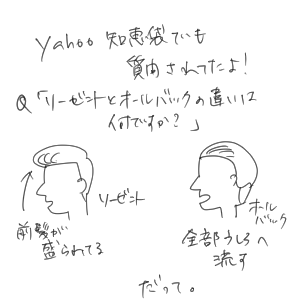 Yahoo 知恵袋でも
質問されてたよ!
Q「リーゼントとオールバックの違いは
何ですか?」
リーゼント
前髪が
盛られてる
オール
バック
全部うしろへ
流す
だって。